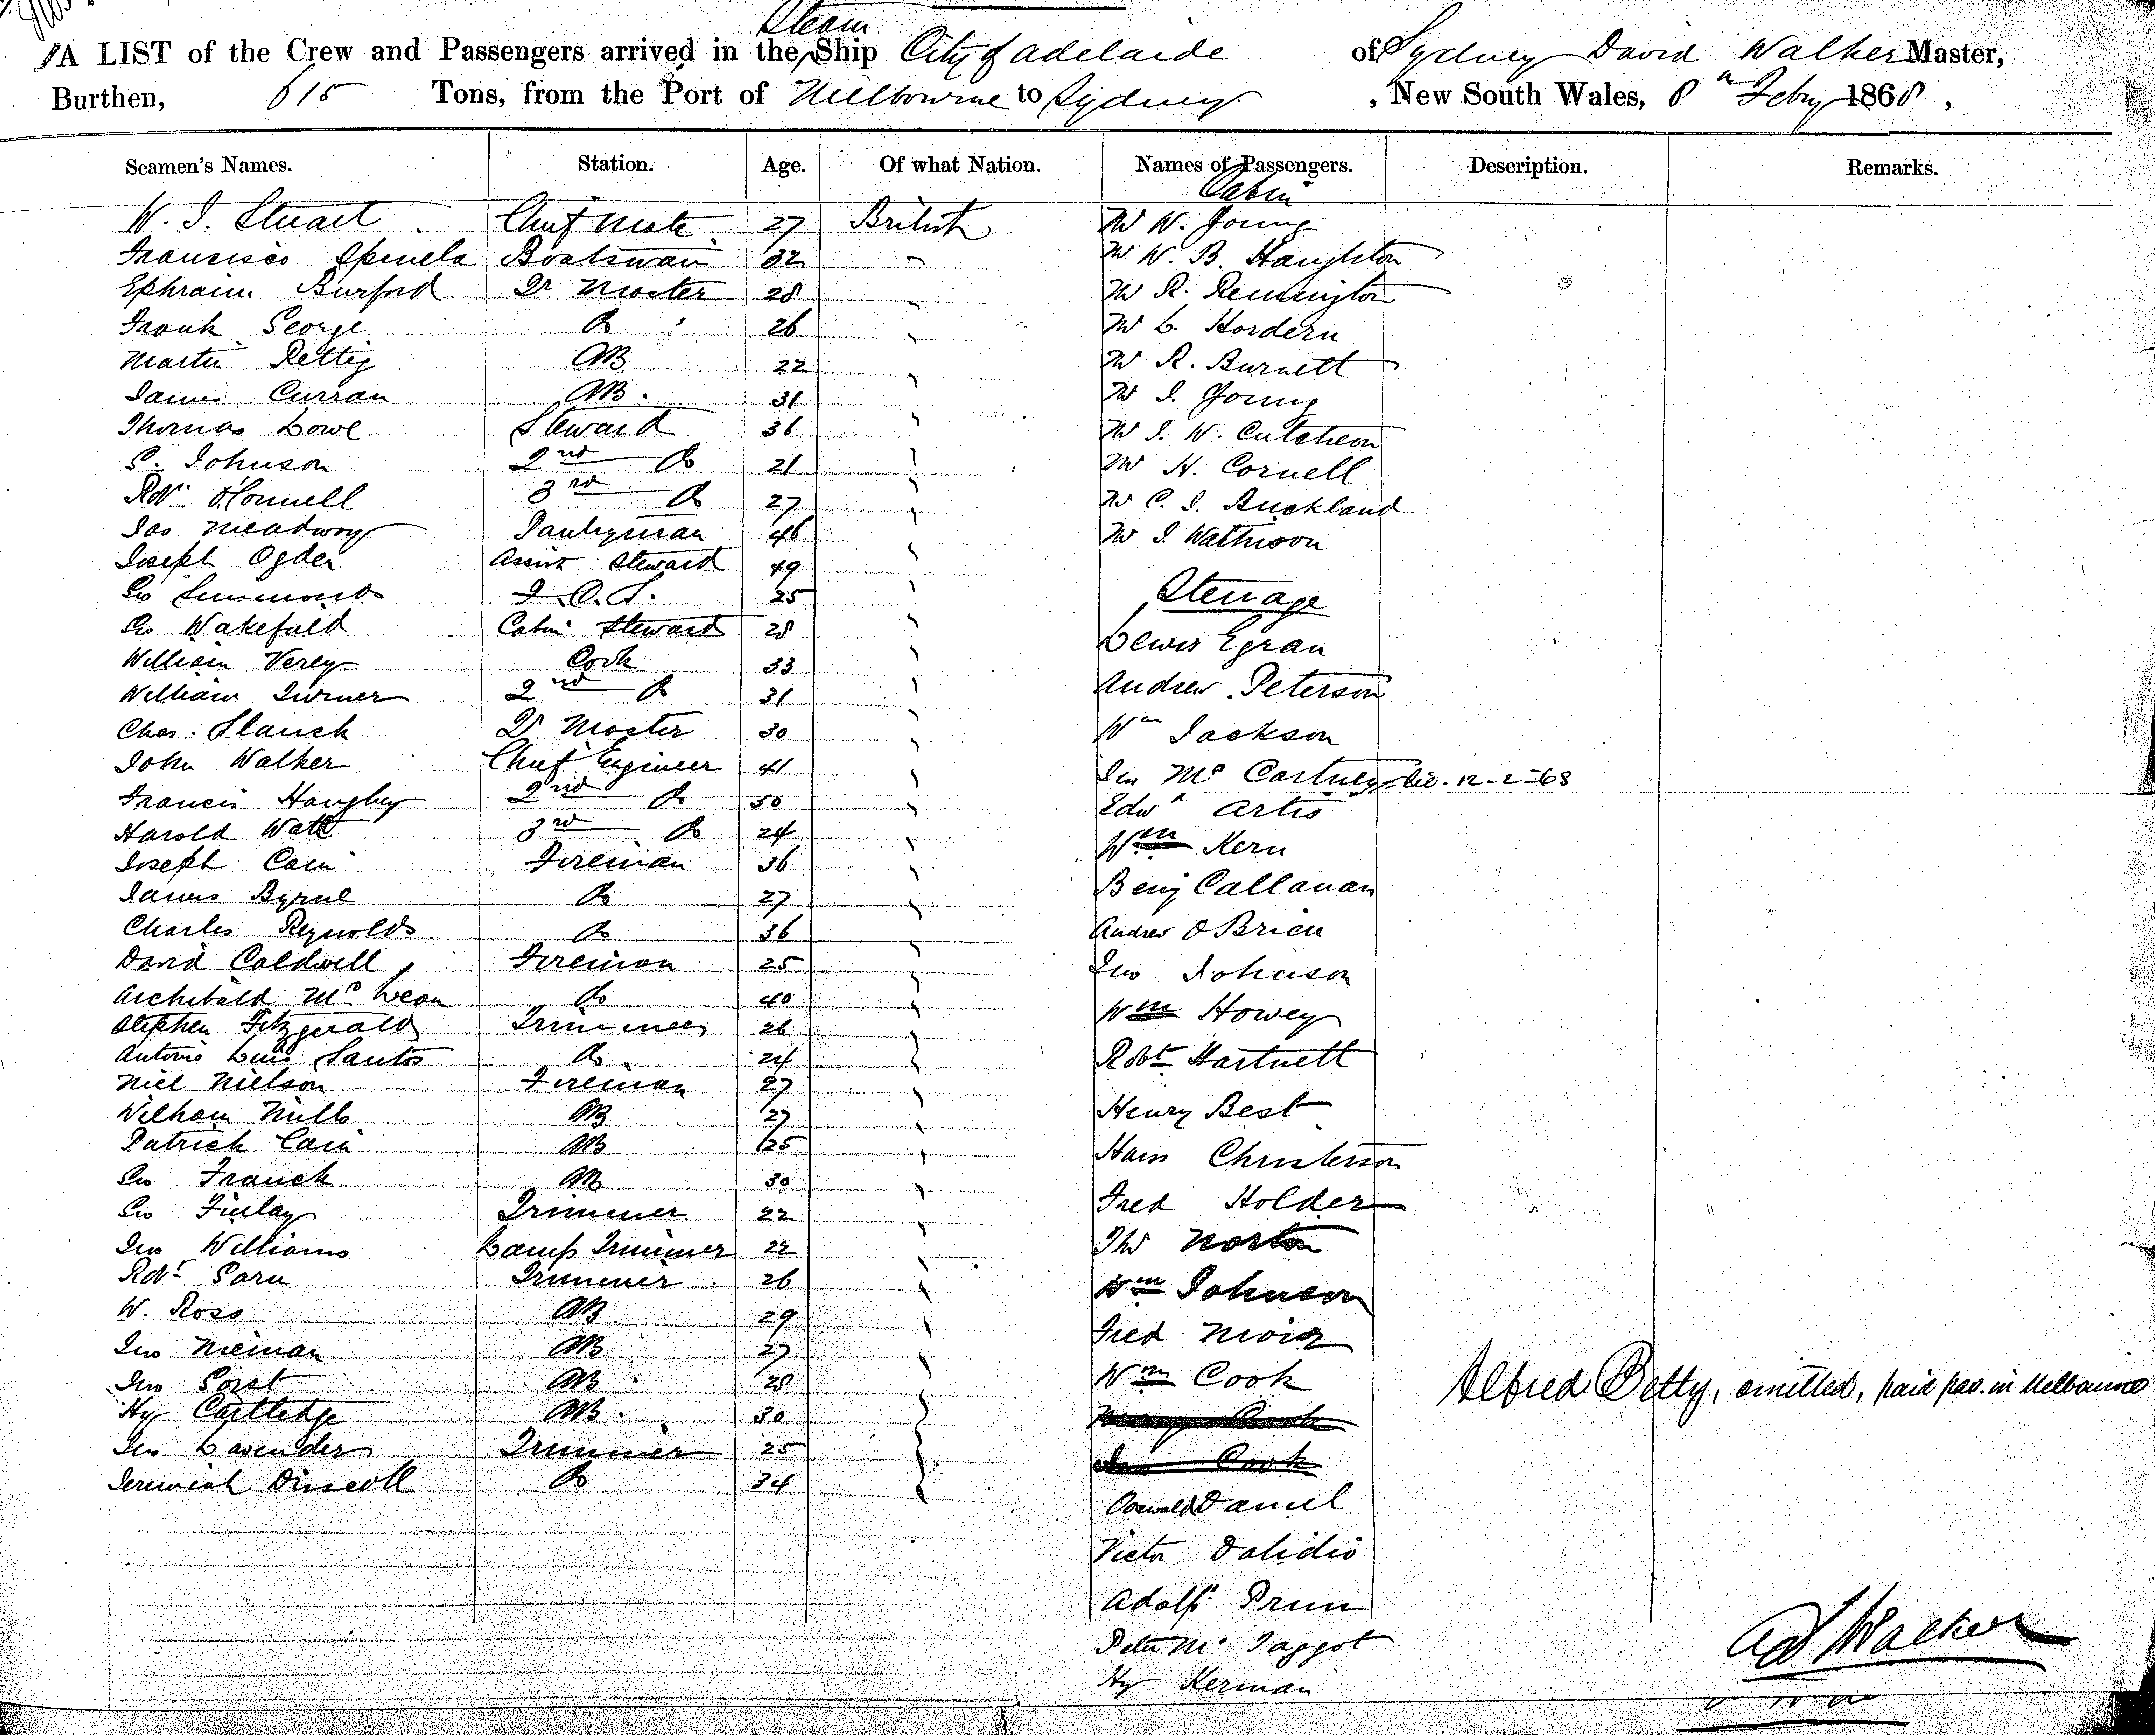 Steam
A LIST of the Crew and Passengers arrived in the Ship City of Adelaide of Sydney David Walker Master,
Burthen, 615 Tons, from the Port of Melbourne to Sydney, New South Wales, 8th Feby 1868,
Seamen's Names. Station. Age. Of what Nation. Names of Passengers. Description. Remarks.
Cabin
W. J. Stuart Chief Mate 27 British Mr W. Young
Francisco Boatswain 32 Mr W. B. Haughton
Ephraim Burford Qr Master 28 Mr R. Remington
Frank George Do 26 Mr L. Hordern
Martin Rettig AB 22 Mr R. Burnett
James Curran AB. 31 Mr J. Young
Thomas Lowe Steward 36 Mr J. W. Cutcheon
S. Johnson 2nd Do 21 Mr H. Cornell
Robt O'Connell 3rd Do 27 Mr C. J. Buckland
Jas Meadway Pantryman 46 Mr J. Mathison
Joseph Ogden Assist Steward 49
Geo Simmonds F.C.S. 25 Steerage
Geo Wakefield Cabin Steward 28 Lewis Egran
William Verey Cook 33
William Turner 2nd Do 31 Andrew Peterson
Chas. Slauck Qr Master 30 Wm Jackson
John Walker Chief Engineer 41 Jno McCartney 12-2-68
Francis Haughey 2nd Do 50 Edwd Artis
Harold Watt 3rd Do 24 Wm Kern
Joseph Cain Fireman 36
James Byrne Do 27 Benj Callanan
Charles Reynolds Do 36 Andrew O Brien
David Caldwell Fireman 25 Jno Johnson
Archibald McLean Do 40 Wm Howey
Stephen Fitzgerald Trimmer 26
Antonio Luis Santos Do 24 Robt Hartnett
Niel Nielson Fireman 27
William Mills AB 27 Henry Best
Patrick Cain AB 25 Hans Christerson
Geo Franck AB 30
Geo Finlay Trimmer 22 Fred Holder
Jno Williams Lamp Trimmer 22 Tho Norton
Robt Parn Trimmer 26 Wm Johnson
W. Ross AB 29
Jno Nieman AB 27 Fred Moir
Jno AB 28 Wm Cook Alfred Betty, omitted, paid pas. in Melbourne
Hy Cartledge AB. 30
Jno Lavender Trimmer 25 Cook
Jeremiah Driscoll Do 34
Oswald Daniel
Victor Dalidio
Adolf Prun
Peter McTaggot
Hy Kerman
Walker